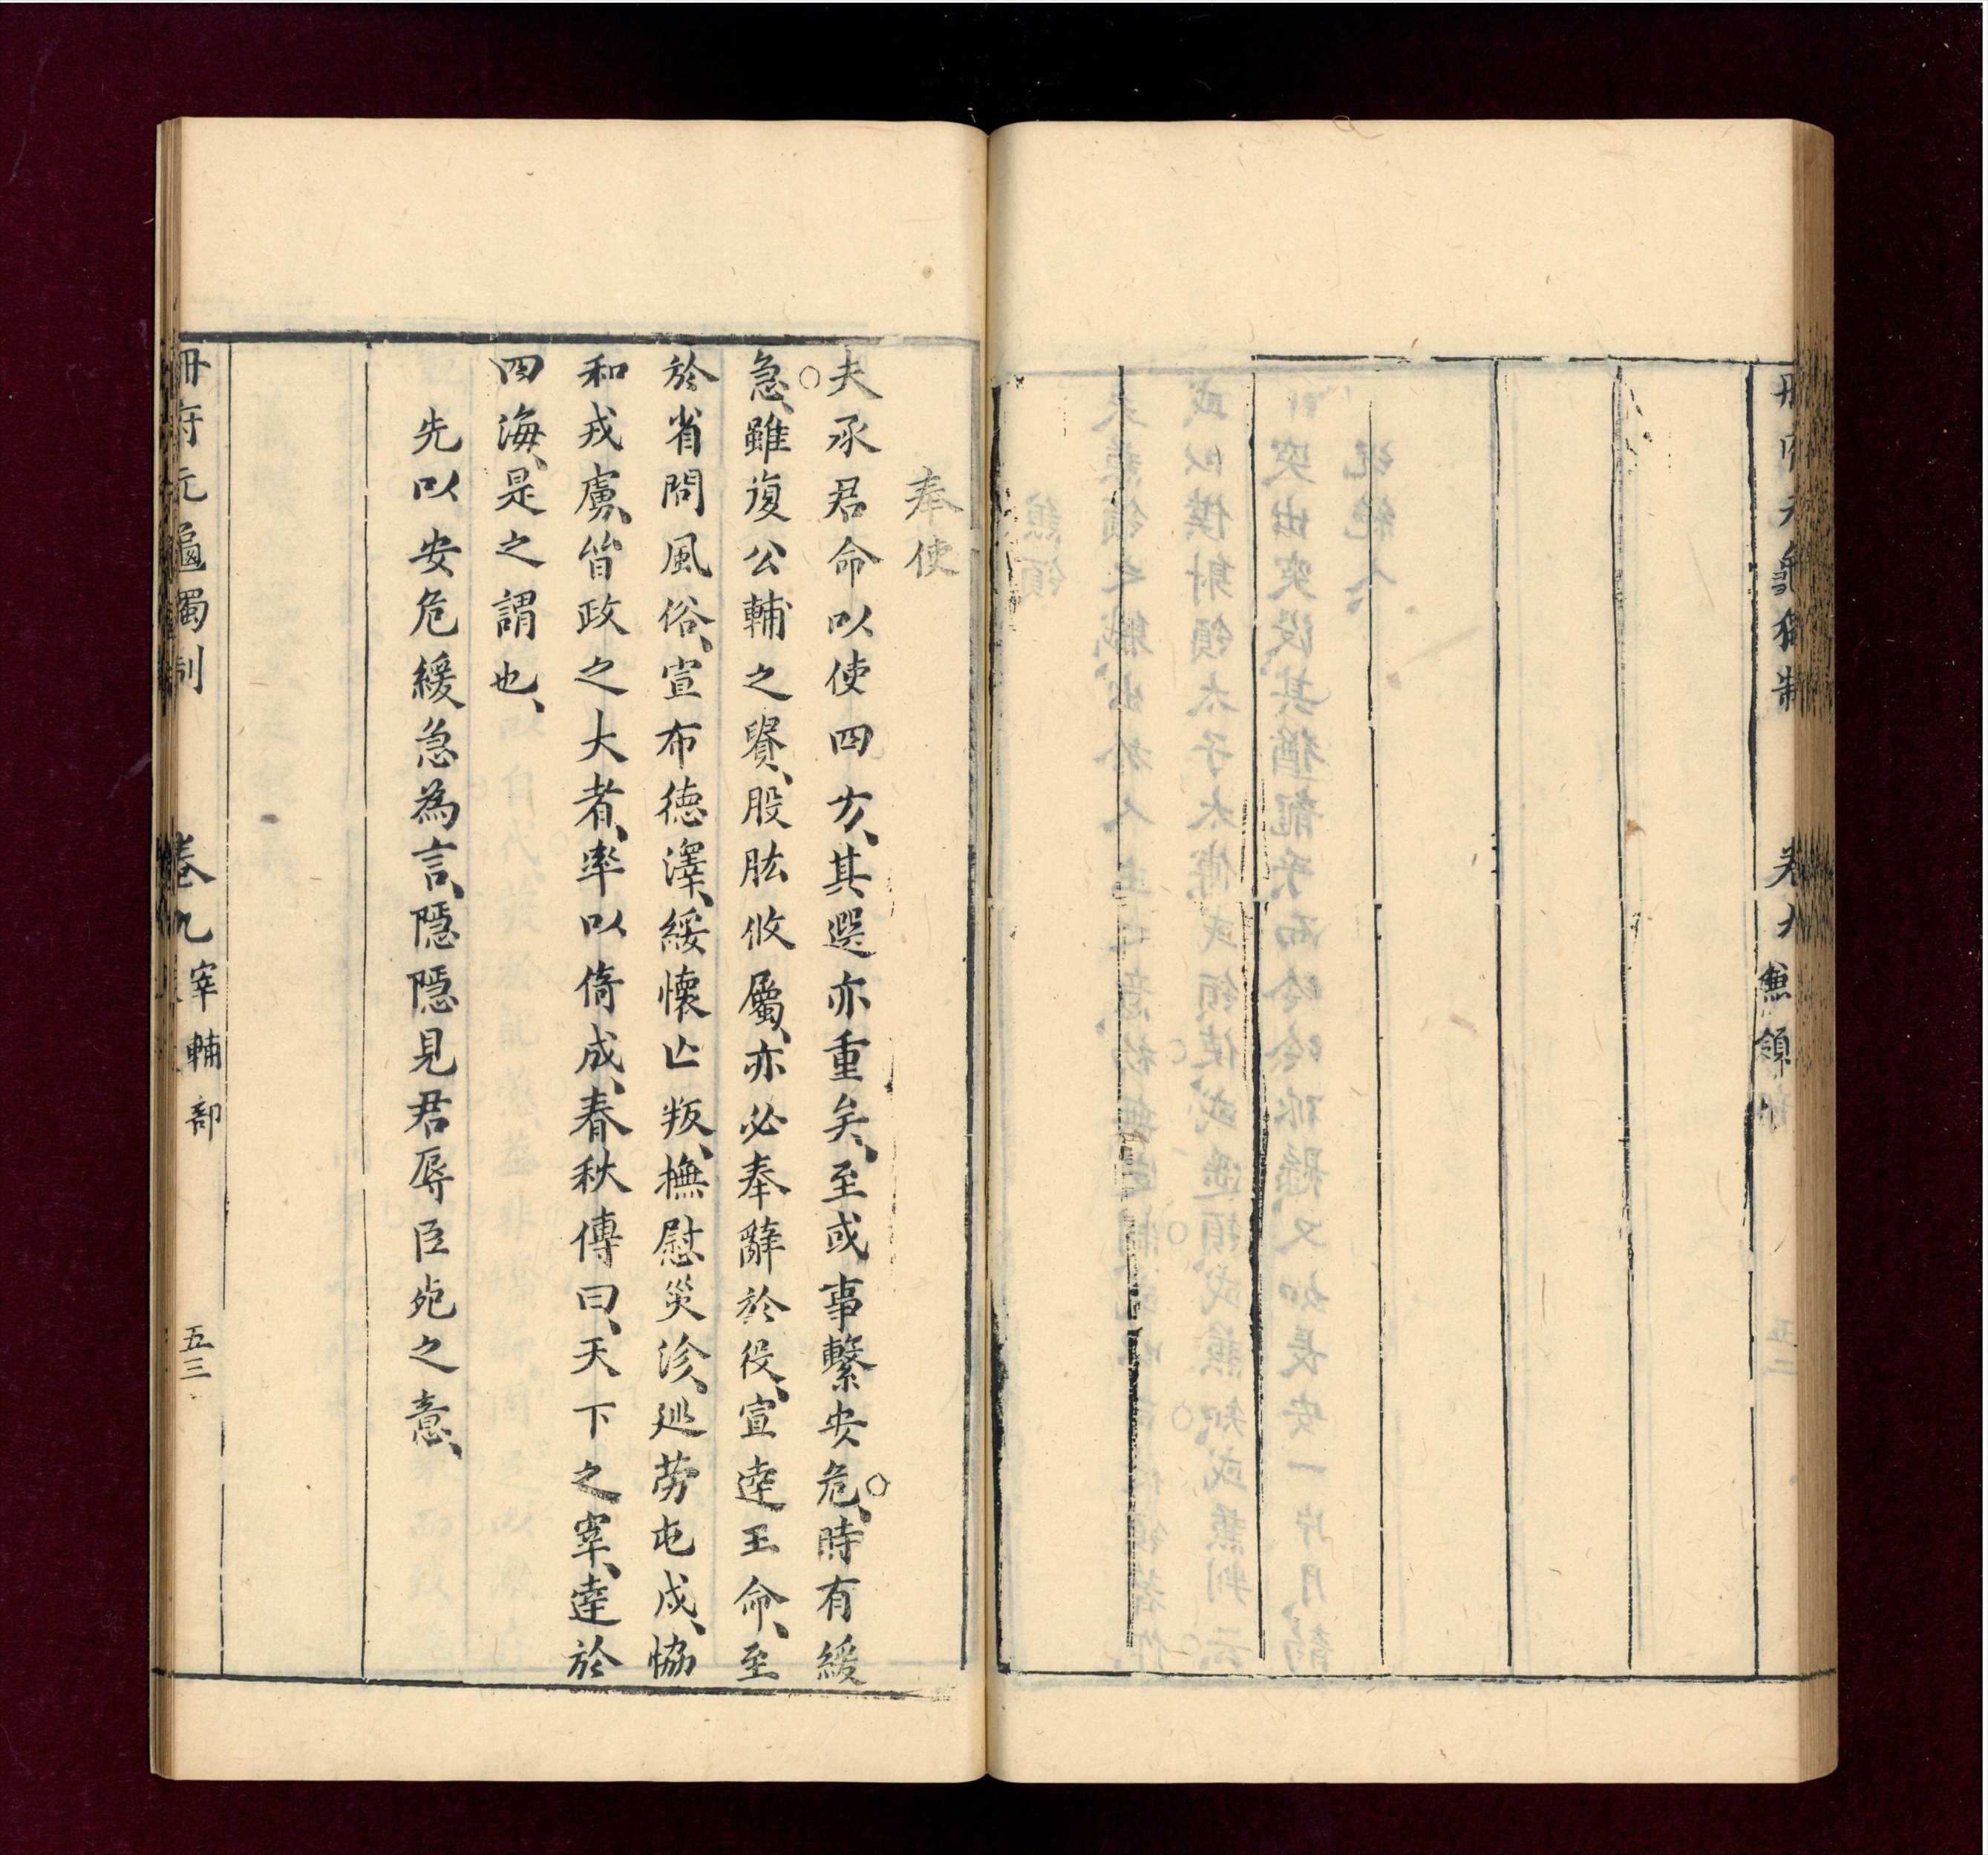 兼領
奉使
夫承君命以使四方、其選亦重矣、至或事繫安危、時有緩
急、雖復公輔之賢、股肱攸屬、亦必奉辭於役、宣達王命、至
於省問風俗、宣布德澤、綏懷亡叛、撫慰災沴、巡勞屯戍、協
和戎虜、皆政之大者、率以倚成、春秋傳曰、天下之宰、達於
四海、是之謂也、
先以安危緩急為言、隱隱見君辱臣死之意、
冊府元龜獨制 卷九 宰輔部 五三